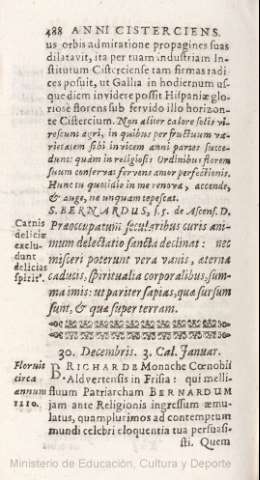 488 ANNI CISTERCIENS.
us orbis admiratione propagines suas
dilatavit, ita per tuam industriam In-
stitutum Cisterciense tam firmas radi-
ces posuit, ut Gallia in hodiernum us-
que diem invidere possit Hispaniæ glo-
riose florens sub fervido illo horizon-
te Cistercium. Non aliter calore solis vi-
rescunt agri, in quibus per fructuum va-
rietatem sibi invicem anni partes succe-
dunt: quàm in religiosis Ordinibus florem
suum conservat fervens amor perfectionis.
Hunc tu quotidie in me renova, accende,
& auge, ne unquam tepescat.
S. BERNARDUS, s. 5. de Ascens. D.
Carnis
deliciæ
exclu-
dunt
delicias
spirit⁹.
Præoccupatum sæcularibus curis ani-
mum delectatio sancta declinat: nec
misceri poterunt vera vanis, æterna
caducis, spiritualia corporalibus, sum-
ma imis: ut pariter sapias, quæ sursum
sunt, & quæ super terram.
30. Decembris. 3. Cal. Januar.
Floruit
circa
annum
1110.
B. RICHARDE Monache Cœnobii
Aldvertensis in Frisia: qui melli-
fluum Patriarcham BERNARDUM
jam ante Religionis ingressum æmu-
latus, quamplurimos ad contemptum
mundi celebri eloquentia tua persuasi-
sti. Quem
Ministerio de Educación, Cultura y Deporte